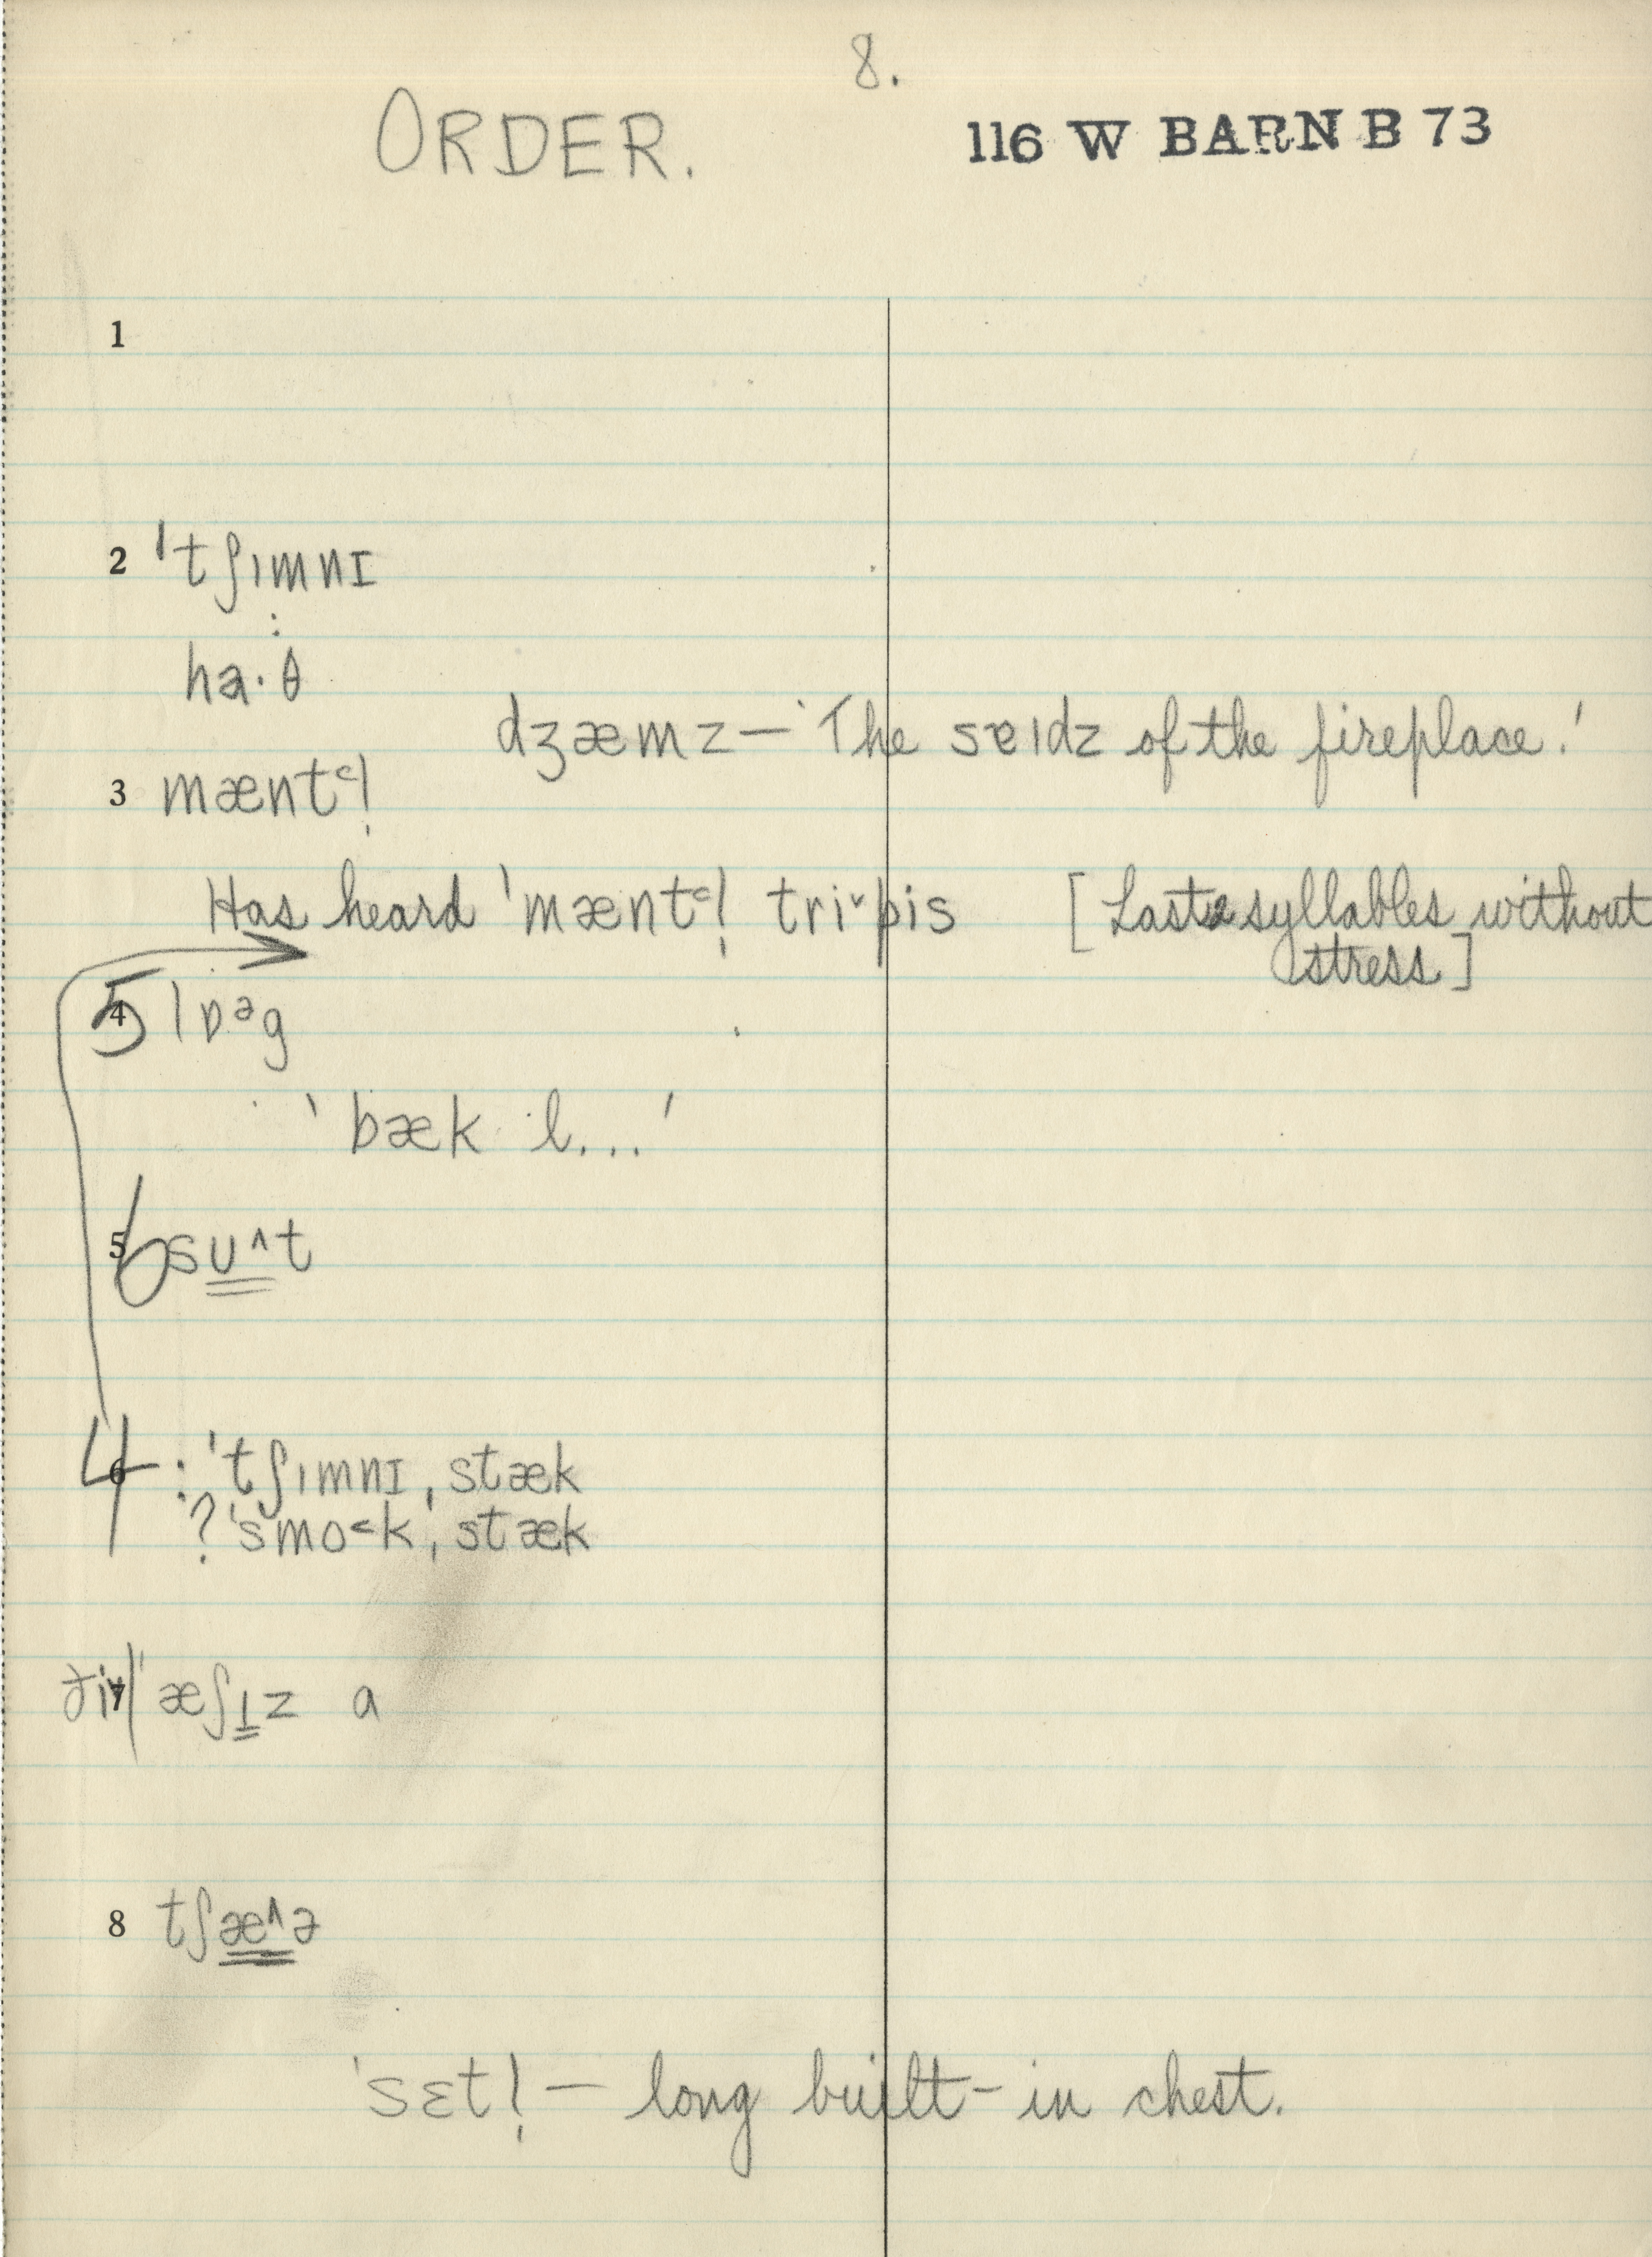 8.
ORDER.
116 W BARN B 73
1
2 ˈtʃɪmnɪ
ha·θ
dʒæmz — 'The sɐɪdz of the fireplace.'
3 mæntᶜl̩
Has heard ˈmæntᶜl̩ tri˅pis [Last syllables without
stress]
5 lɒᵊg
'bæk l...'
6 sʊ^t
4 : ˈtʃɪmnɪˌstæk
? ˈsmo<kˌstæk
ˈæʃɪz a
8 tʃæ^ə
ˈsɛtl̩ — long built-in chest.